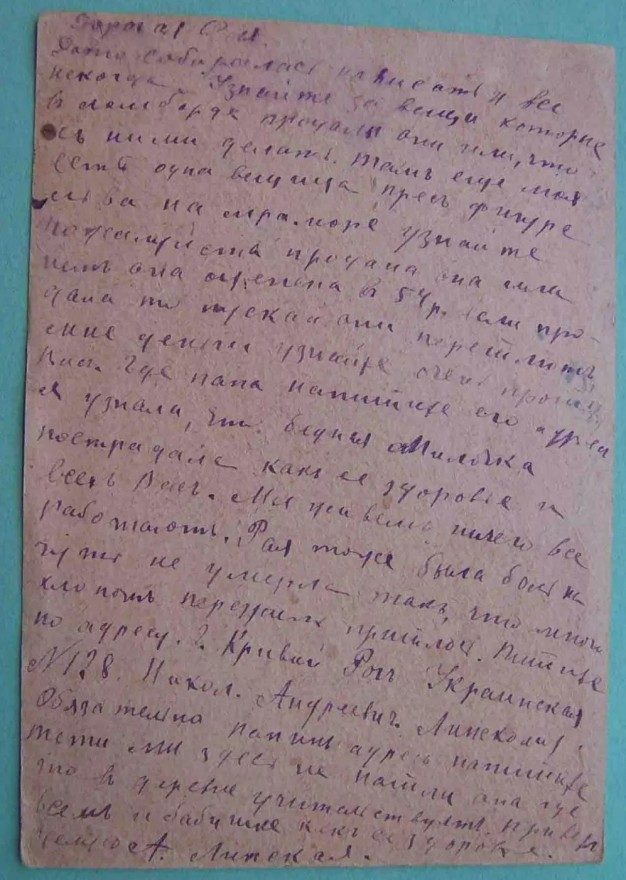 Дорогая Оля.
Давно собиралась написать и все
некогда. Узнайте за вещи которые
в ломбарде проданы они или, что
съ ними делать. тамъ еще моя
есть одна вещица пресъ фигура
льва на мраморе узнайте
пожалуйста продана она или
нетъ она оценена в 54р. если про-
дана то пускай они перешлютъ
мне деньги узнайте очень прошу
Васъ. Где папа напишите его адресъ
Я узнала, что бедная Милочка
пострадала какъ ее здоровье и
всехъ Васъ. Мы живемъ ничего все
работаютъ. Рая тоже была больна
чуть не умерла такъ, что много
хлопотъ пришлось. Пишите
по адресу. г. Кривой Рогъ Украинская
N 128. Никол. Андреевич. Липской.
Обязательно папинъ адресъ напишите
тети мы здесь не нашли она где
то в деревне учительствуетъ. привет
всемъ и бабушке какъ ее здоровье.
А. Липская.